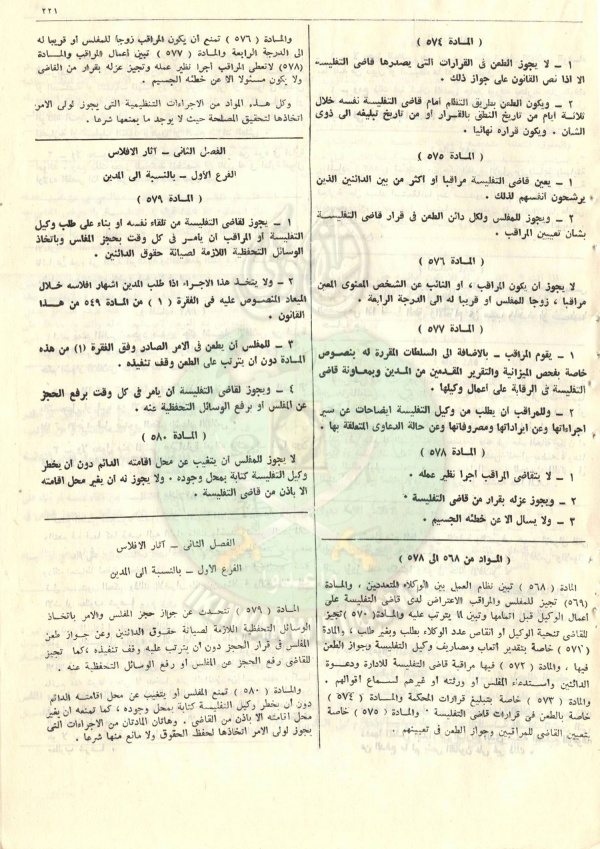 ٢٢١
( المادة ٥٧٤ )
١ ــ لا يجوز الطعن فى القرارات التى يصدرها قاضى التفليسة
الا اذا نص القانون على جواز ذلك .
٢ ــ ويكون الطعن بطريق التظلم أمام قاضى التفليسة نفسه خلال
ثلاثة أيام من تاريخ النطق بالقرار او من تاريخ تبليغه الى ذوى
الشأن . ويكون قراره نهائيا .
( المادة ٥٧٥ )
١ ــ يعين قاضى التفليسة مراقبا او أكثر من بين الدائنين الذين
يرشحون انفسهم لذلك .
٢ ــ ويجوز للمفلس ولكل دائن الطعن فى قرار قاضى التفليسة
بشأن تعيين المراقب .
( المادة ٥٧٦ )
لا يجوز ان يكون المراقب ، او النائب عن الشخص المعنوى المعين
مراقبا ، زوجا للمفلس او قريبا له الى الدرجة الرابعة .
( المادة ٥٧٧ )
١ ــ يقوم المراقب ــ بالاضافة الى السلطات المقررة له بنصوص
خاصة بفحص الميزانية والتقرير المقدمين من المدين وبمعاونة قاضى
التفليسة فى الرقابة على أعمال وكيلها .
٢ ــ وللمراقب أن يطلب من وكيل التفليسة ايضاحات عن سير
اجراءاتها وعن ايراداتها ومصروفاتها وعن حالة الدعاوى المتعلقة بها .
( المادة ٥٧٨ )
١ ــ لا يتقاضى المراقب أجرا نظير عمله .
٢ ــ ويجوز عزله بقرار من قاضى التفليسة .
٣ ــ ولا يسأل الا عن خطئه الجسيم .
( المواد من ٥٦٨ الى ٥٧٨ )
المادة ( ٥٦٨ ) تبين نظام العمل بين الوكلاء المتعددين ، والمادة
(٥٦٩) تجيز للمفلس والمراقب الاعتراض لدى قاضى التفليسة على
أعمال الوكيل قبل اتمامها وتبين ما يترتب عليه والمادة (٥٧٠) تجيز
للقاضى تنحية الوكيل او انقاص عدد الوكلاء بطلب وبغير طلب ، والمادة
(٥٧١ ) خاصة بتقدير أتعاب ومصاريف وكيل التفليسة وبجواز الطعن
فيها ، والمادة ( ٥٧٢ ) فيها مراقبة قاضى التفليسة للادارة ودعوة
الدائنين واستدعاء المفلس أو ورثته أو غيرهم لسماع أقوالهم .
( ٥٧٣ ) خاصة بتبليغ قرارات المحكمة والمادة ( ٥٧٤ )
خاصة بالطعن فى قرارات قاضى التفليسة . والمادة (٥٧٥ ) خاصة
بتعيين القاضى للمراقبين وجواز الطعن فى تعيينهم .
والمادة (٥٧٦ ) تمنع ان يكون المراقب زوجا للمفلس او قريبا له
الى الدرجة الرابعة والمادة ( ٥٧٧ ) تبين أعمال المراقب والمادة
(٥٧٨) لاتعطى المراقب اجرا نظير عمله وتجيز عزله بقرار من القاضى
ولا يكون مسئولا الا عن خطئه الجسيم .
وكل هذه المواد من الاجراءات التنظيمية التى يجوز لولى الامر
اتخاذها لتحقيق المصلحة حيث لا يوجد ما يمنعها شرعا .
الفصل الثانى ــ آثار الافلاس
الفرع الأول ــ بالنسبة الى المدين
( المادة ٥٧٩ )
١ ــ يجوز لقاضى التفليسة من تلقاء نفسه او بناء على طلب وكيل
التفليسة او المراقب ان يأمر فى كل وقت بحجز المفلس وباتخاذ
الوسائل التحفظية اللازمة لصيانة حقوق الدائنين .
٢ ــ ولا يتخذ هذا الاجراء اذا طلب المدين اشهار افلاسه خلال
الميعاد المنصوص عليه فى الفقرة ( ١ ) من المادة ٥٤٩ من هذا
القانون .
٣ ــ للمفلس أن يطعن فى الامر الصادر وفق الفقرة (١) من هذه
المادة دون أن يترتب على الطعن وقف تنفيذه .
٤ ــ ويجوز لقاضى التفليسة أن يأمر فى كل وقت برفع الحجز
عن المفلس او برفع الوسائل التحفظية عنه .
( المادة ٥٨٠ )
لا يجوز للمفلس أن يتغيب عن محل اقامته الدائم دون أن يخطر
وكيل التفليسة كتابة بمحل وجوده . ولا يجوز له ان يغير محل اقامته
الا باذن من قاضى التفليسة .
الفصل الثانى ــ آثار الافلاس
الفرع الأول ــ بالنسبة الى المدين
المادة ( ٥٧٩ ) تتحدث عن جواز حجز المفلس والامر باتخاذ
الوسائل التحفظية اللازمة لصيانة حقوق الدائنين وعن جواز طعن
المفلس فى قرار الحجز دون أن يترتب عليه وقف تنفيذه ، كما تجيز
للقاضى رفع الحجز عن المفلس أو رفع الوسائل التحفظية عنه .
والمادة ( ٥٨٠ ) تمنع المفلس أو يتغيب عن محل اقامته الدائم
دون أن يخطر وكيل التفليسة كتابة بمحل وجوده ، كما تمنعه ان يغير
محل اقامته الا باذن من القاضى . وهاتان المادتان من الاجراءات التى
يجوز لولى الامر اتخاذها لحفظ الحقوق ولا مانع منها شرعا .